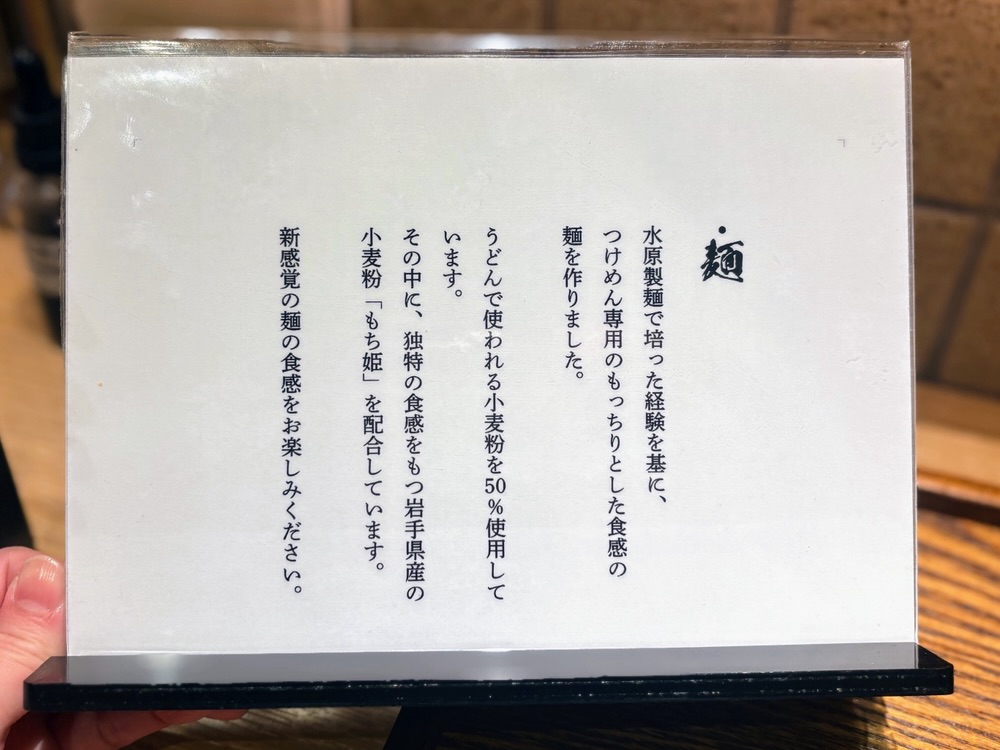 ・麺
水原製麺で培った経験を基に、
つけめん専用のもっちりとした食感の
麺を作りました。
うどんで使われる小麦粉を50%使用して
います。
その中に、独特の食感をもつ岩手県産の
小麦粉「もち姫」を配合しています。
新感覚の麺の食感をお楽しみください。